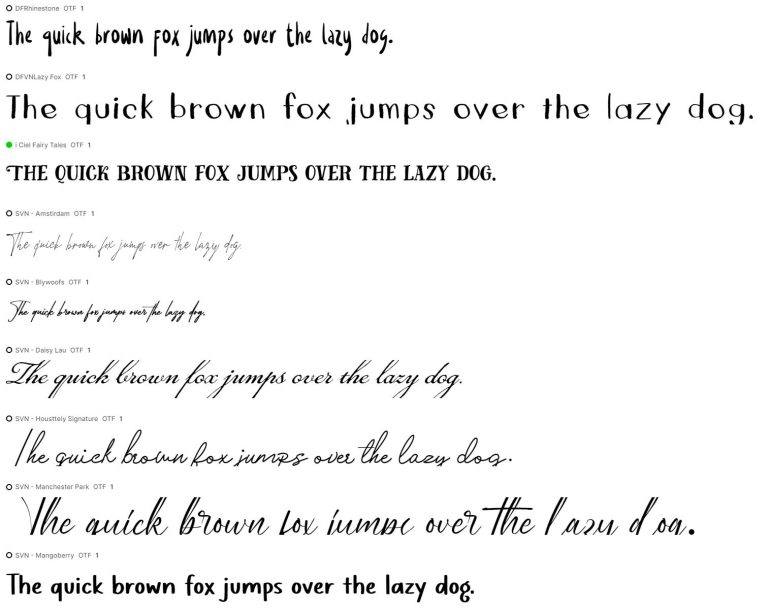 DFRhinestone OTF 1
The quick brown fox jumps over the lazy dog.
DFVNLazy Fox OTF 1
The quick brown fox jumps over the lazy dog.
i Ciel Fairy Tales OTF 1
THE QUICK BROWN FOX JUMPS OVER THE LAZY DOG.
SVN - Amstirdam OTF 1
The quick brown fox jumps over the lazy dog.
SVN - Blywoofs OTF 1
The quick brown fox jumps over the lazy dog.
SVN - Daisy Lau OTF 1
The quick brown fox jumps over the lazy dog.
SVN - Housttely Signature OTF 1
The quick brown fox jumps over the lazy dog.
SVN - Manchester Park OTF 1
The quick brown fox jumps over the lazy dog.
SVN - Mangoberry OTF 1
The quick brown fox jumps over the lazy dog.